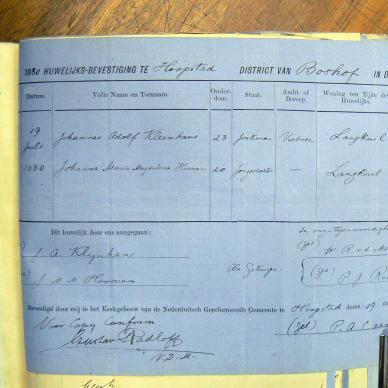 1880 HUWELIJKS-BEVESTIGING TE Hoopstad DISTRICT VAN Boshof IN D
Datum. Volle Naam en Toenaam. Ouder-dom. Staat. Ambt of Beroep. Woning ten Tijde de Huwelijks.
19 Juli Johannes Adolf Kleinhans 23 Jonkman Veeboer Langkuil
1880 Johanna Maria Magdalena 20 Jongedochter — Langkuil
Dit huwelijk door ons aangegaan:
J. A. Kleynhans
J M M
Als Getuigen
(get) W. R. v.d. M
(get) P. J.
Bevestigd door mij in het Kerkgebouw van de Nederduitsch Gereformeerde Gemeente te Hoopstad dezen 19
Voor Copy Conform (get) P. A. C.
Gustav Radloff
V. D. M.